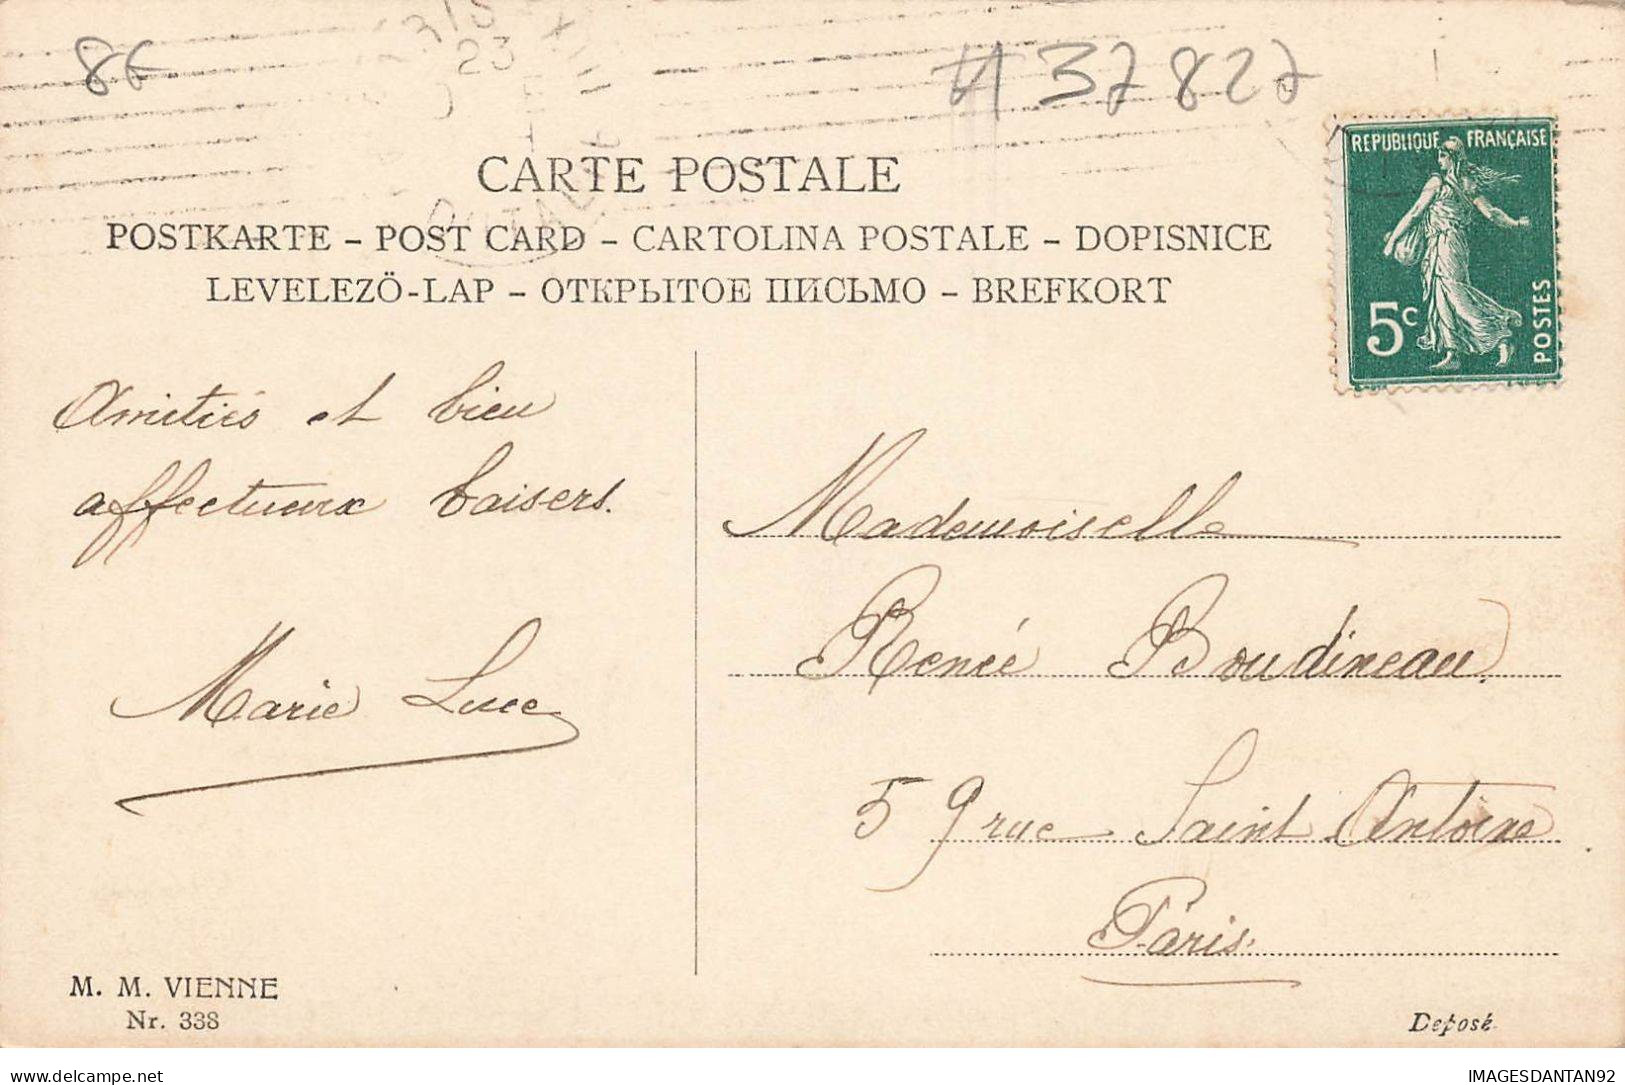 8€
#37827
23
RÉPUBLIQUE FRANÇAISE
5c
POSTES
CARTE POSTALE
POSTKARTE – POST CARD – CARTOLINA POSTALE – DOPISNICE
LEVELEZÖ-LAP – ОТКРЫТОЕ ПИСЬМО – BREFKORT
Amitiés et bien
affectueux baisers.
Marie Luce
Mademoiselle
Renée Boudineau
59 rue Saint Antoine
Paris
M. M. VIENNE
Nr. 338
Deposé
delcampe.net
IMAGESDANTAN92